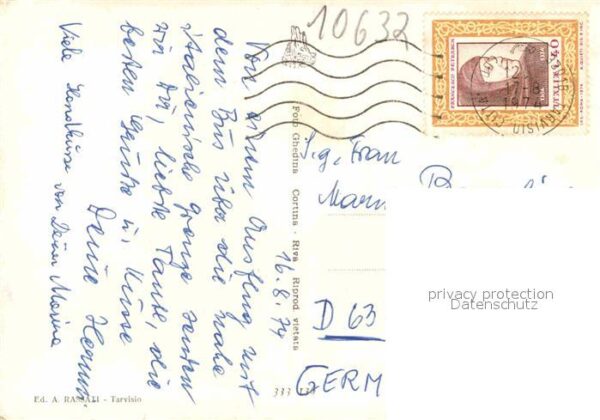 10632
Von einem Ausflug mit
dem Bus über die nahe
italienische Grenze senden
wir Dir, liebste Tante, die
besten Grüsse u. Küsse
Deine
Viele Handküsse von Deiner
16.8.74
Foto Ghedina Cortina - Riva Riprod vietata
FRANCESCO PETRARCA
ITALIA
L.40
TARVISIO
Sig. Frau
D 63
GERM
privacy protection
Datenschutz
Ed. A. RASSATI - Tarvisio
333